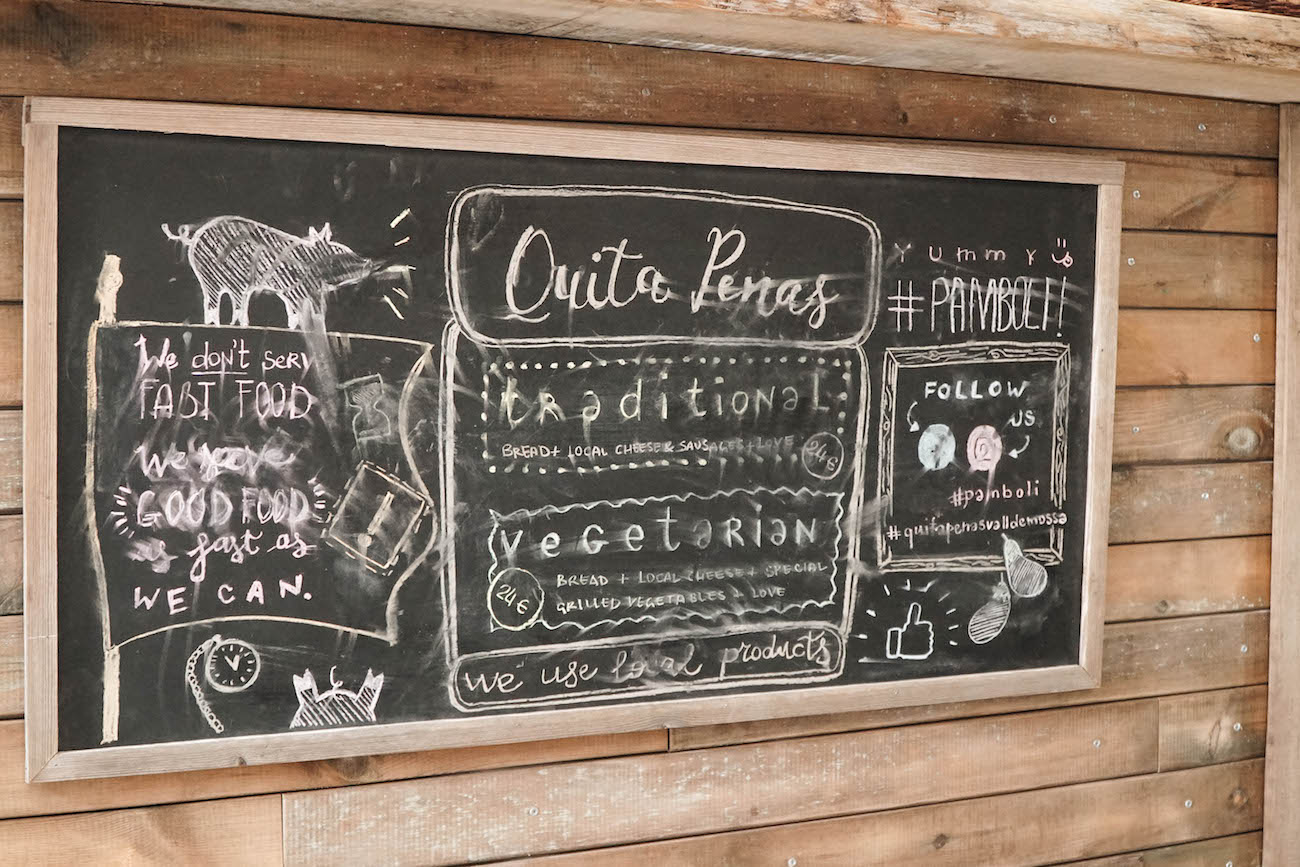 We don't serv
FAST FOOD
We serve
GOOD FOOD
as fast as
WE CAN.
Quita Penas
traditional
BREAD + LOCAL CHEESE & SAUSAGES + LOVE
24€
VeGetaRian
BREAD + LOCAL CHEESE + SPECIAL
GRILLED VEGETABLES + LOVE
24€
We use local products
Yummy
#PAMBOLI!
FOLLOW
US
#pamboli
#quitapenasvalldemossa